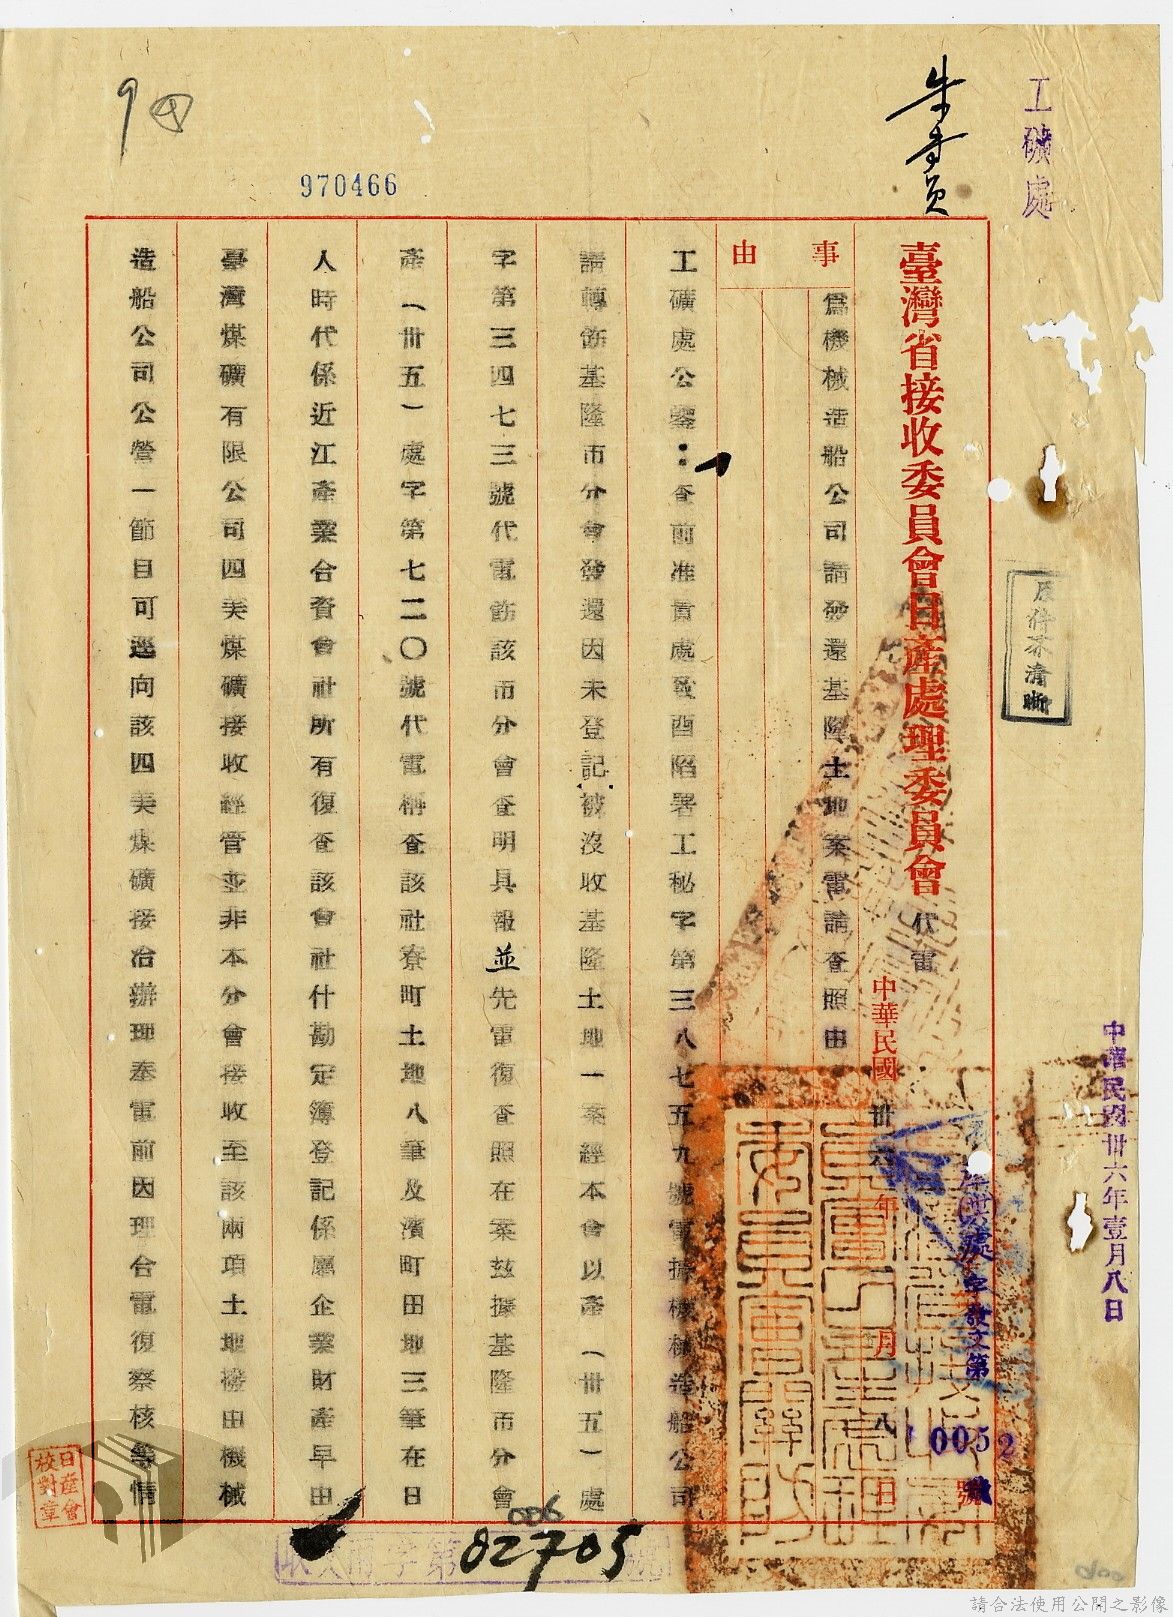 工礦處
9
970466
臺灣省接收委員會日產處理委員會代電
中華民國卅六年 月八日
產 處字發文第00522號
事由
為機械造船公司請發還基隆土地案電請查照由
工礦處公鑒：查前准貴處致酉陷署工秘字第三八七五九號電據機械造船公司
請轉飭基隆市分會發還因未登記被沒收基隆土地一案經本會以產（卅五）處
字第三四七三號代電飭該市分會查明具報並先電復查照在案玆據基隆市分會
產（卅五）處字第七二〇號代電稱查該社寮町土地八筆及濱町田地三筆在日
人時代係近江產業合資會社所有復查該會社什勘定簿登記係屬企業財產早由
臺灣煤礦有限公司四美煤礦接收經管並非本分會接收至該兩項土地撥由機械
造船公司公營一節目可逕向該四美煤礦接洽辦理奉電前因理合電復察核等情
原件不清晰
中華民國卅六年壹月八日
日產會校對章
006
收文 字第82705號
請合法使用公開之影像